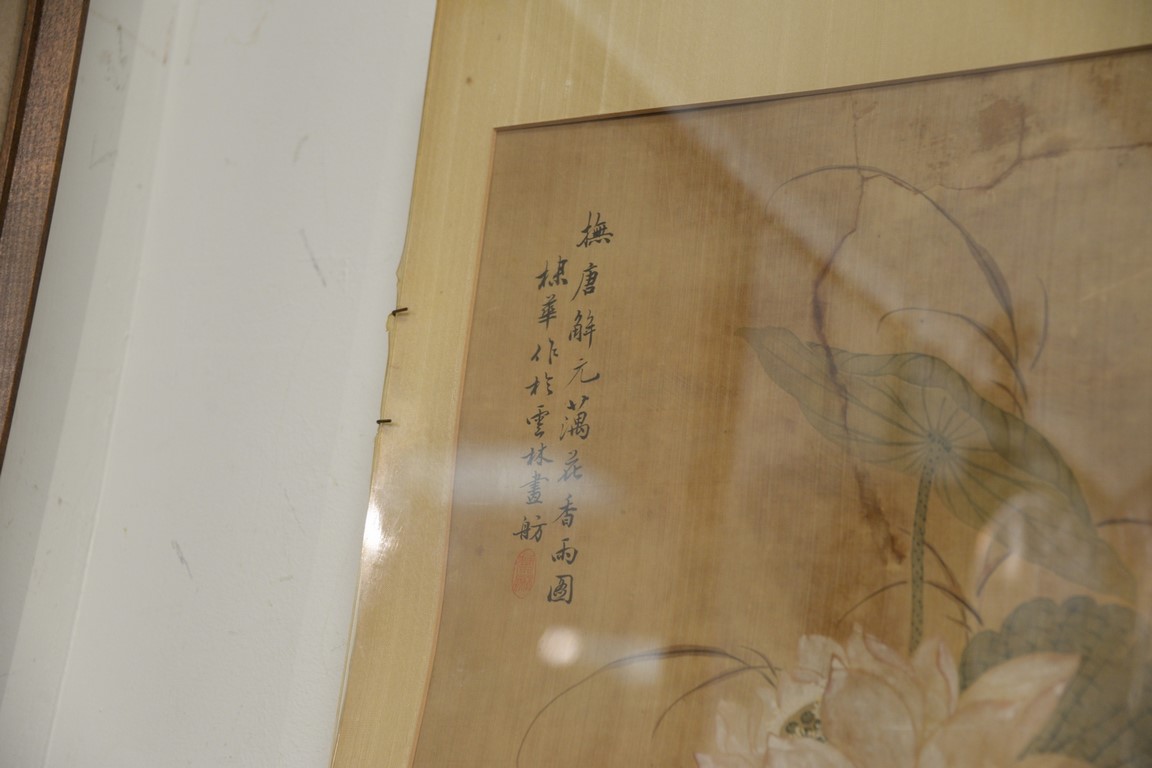 撫唐解元藕花香雨圖
棣華作於雲林畫舫